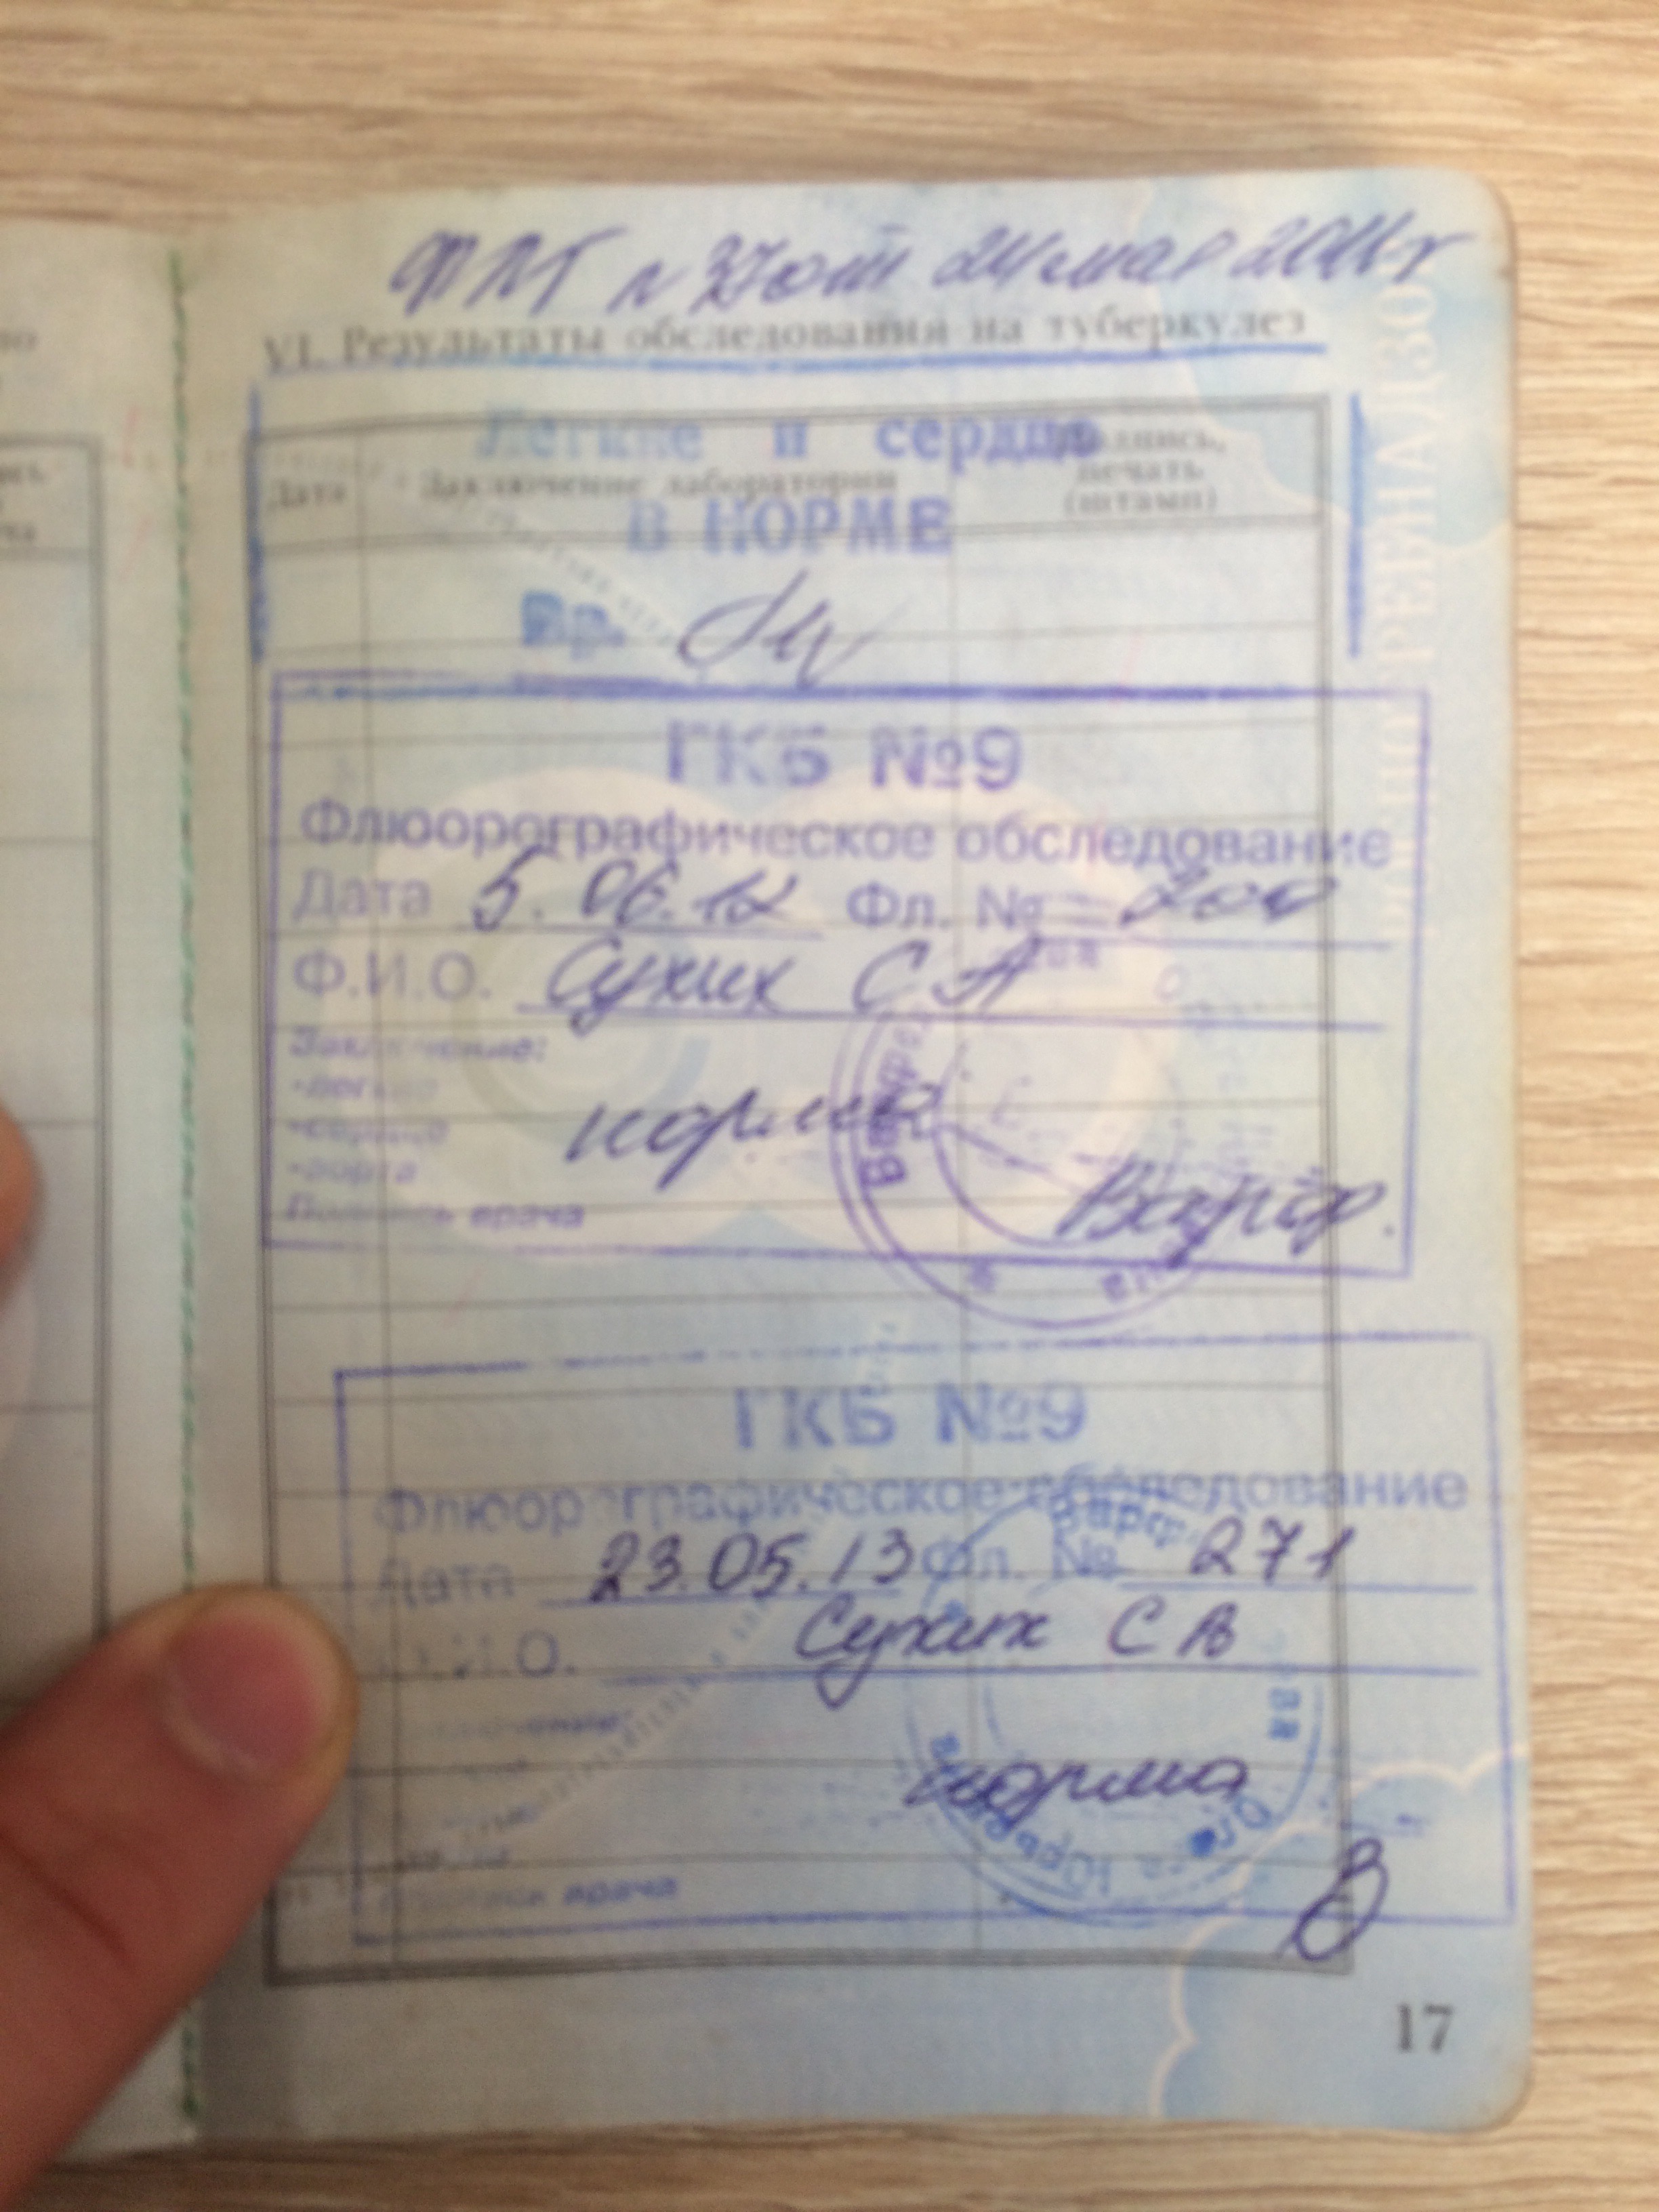 ФЛГ № 37 от 24 мая 2011г
VI. Результаты обследования на туберкулез
Легкие и сердце
Дата Заключение лаборатории Подпись, печать (штамп)
В НОРМЕ
Вр.
ГКБ №9
Флюорографическое обследование
Дата 5.06.12 Фл. № 200
Ф.И.О. Сухих С А
Заключение:
-легкие
-сердце
-аорта
норма
Подпись врача
ГКБ №9
Флюорографическое обследование
Дата 23.05.13 Фл. № 271
Ф.И.О. Сухих С А
норма
Подпись врача
17